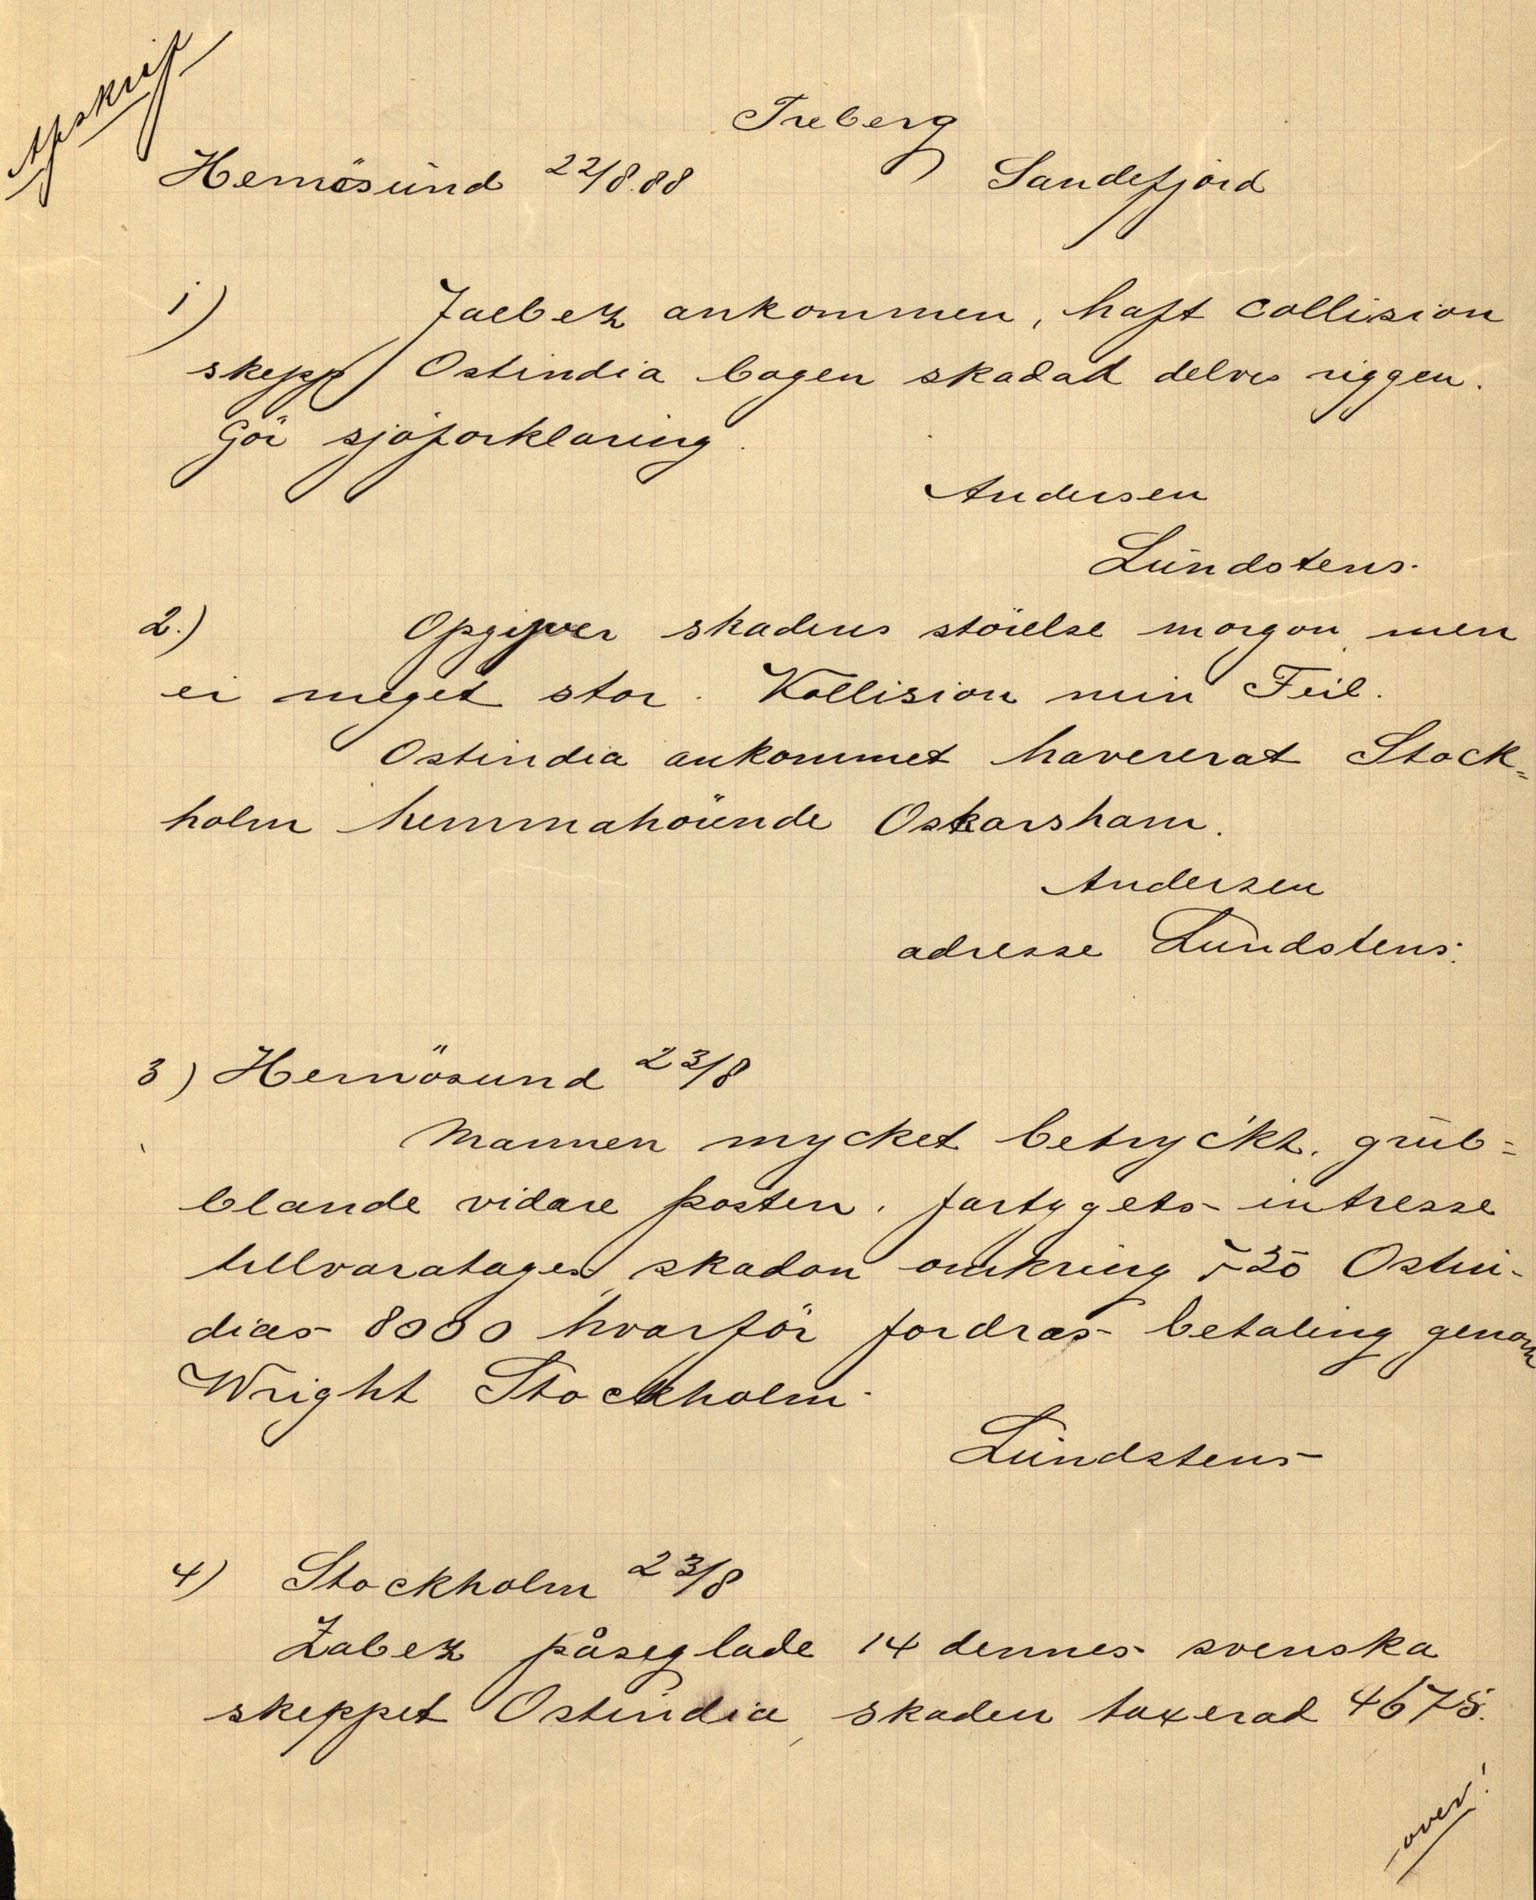 Afskrift
Treberg
Hernösund 22/8.88 Sandefjord
1) Jaebez ankommen, haft collision
skepp Ostindia bogen skadad delves riggen.
Gör sjöforklaring.
Andersen
Lundstens.
2.) Opgifver skadens störelse morgon men
ei meget stor. Kollision min Feil.
Ostindia ankommet havererat Stock=
holm hemmahörende Oskarsham.
Andersen
adresse Lundstens.
3) Hernösund 23/8
Mannen mycket betryckt, grub=
blande vidare posten. fartygets intresse
tillvaratages, skadan omkring Ostin-
dias 8000 hvarför fordras betaling genom
Wright Stockholm.
Lundstens
4) Stockholm 23/8
Zabez påseglade 14 dennes svenska
skeppet Ostindia, skaden taxerad 4675.
over!